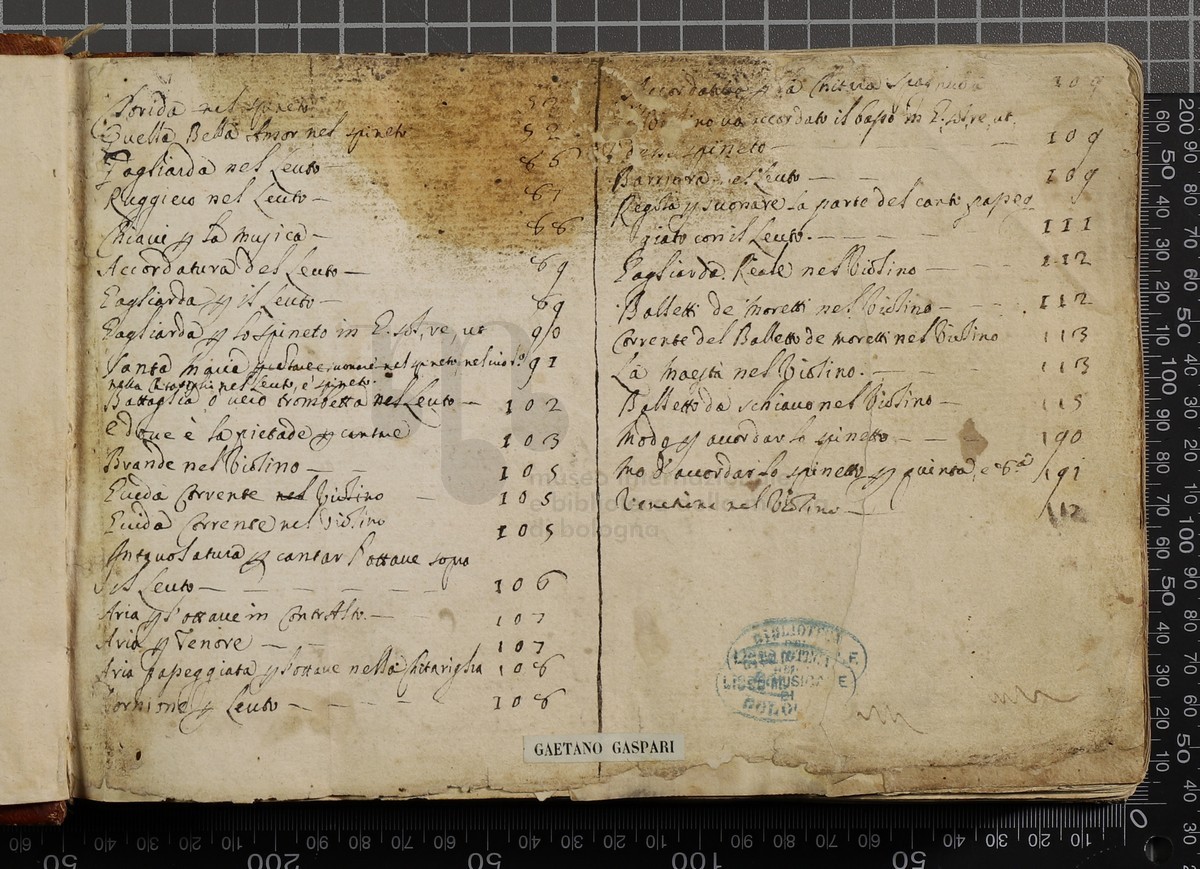 Florida nel spineto 52
Quella Bella Amor nel spineto 52
Gagliarda nel Leuto 66
Ruggiero nel Leuto 67
Chiavi p la musica 68
Accordatura del Leuto 69
Gagliarda p il Leuto 69
Gagliarda p lo spineto in E. sol, re, ut 90
Santa Maria nel spineto 91
nella Chitariglia nel Leuto, e spineto.
Battaglia o vero trombetta nel Leuto 102
E dove è la pietade p cantare 103
Brande nel Violino 105
Guida Corrente nel Violino 105
Guida Corrente nel Violino 105
Intavolatura p cantar l'ottave sopra
il Leuto 106
Aria p l'ottave in Contralto 107
Aria p Tenore 107
Aria passeggiata p l'ottave nella Chitariglia 108
p Leuto 108
Accordatura p la Chitara 109
accordato il basso in E. sol, re, ut.
spineto 109
Barriera nel Leuto 109
Regola p suonare la parte del canto passeg
giato con il Leuto. 111
Gagliarda. Reale nel Violino 112
Balletti de Moretti nel Violino 112
Corrente del Balletto de moretti nel Violino 113
La Maestà nel Violino. 113
Balletto da schiavo nel Violino 115
Modo p accordar lo spinetto 190
Mo d'accordar lo spinetto p quinta, e 8.a 191
nel Violino 112
BIBLIOTECA
LICEO MUSICALE
DI
BOLOGNA
GAETANO GASPARI
museo internazionale
e biblioteca della musica
di bologna